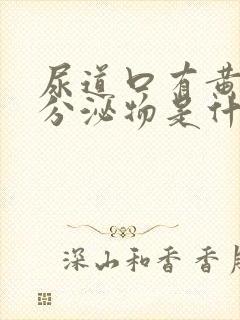 尿道口有黄
分泌物是什
深山和香香